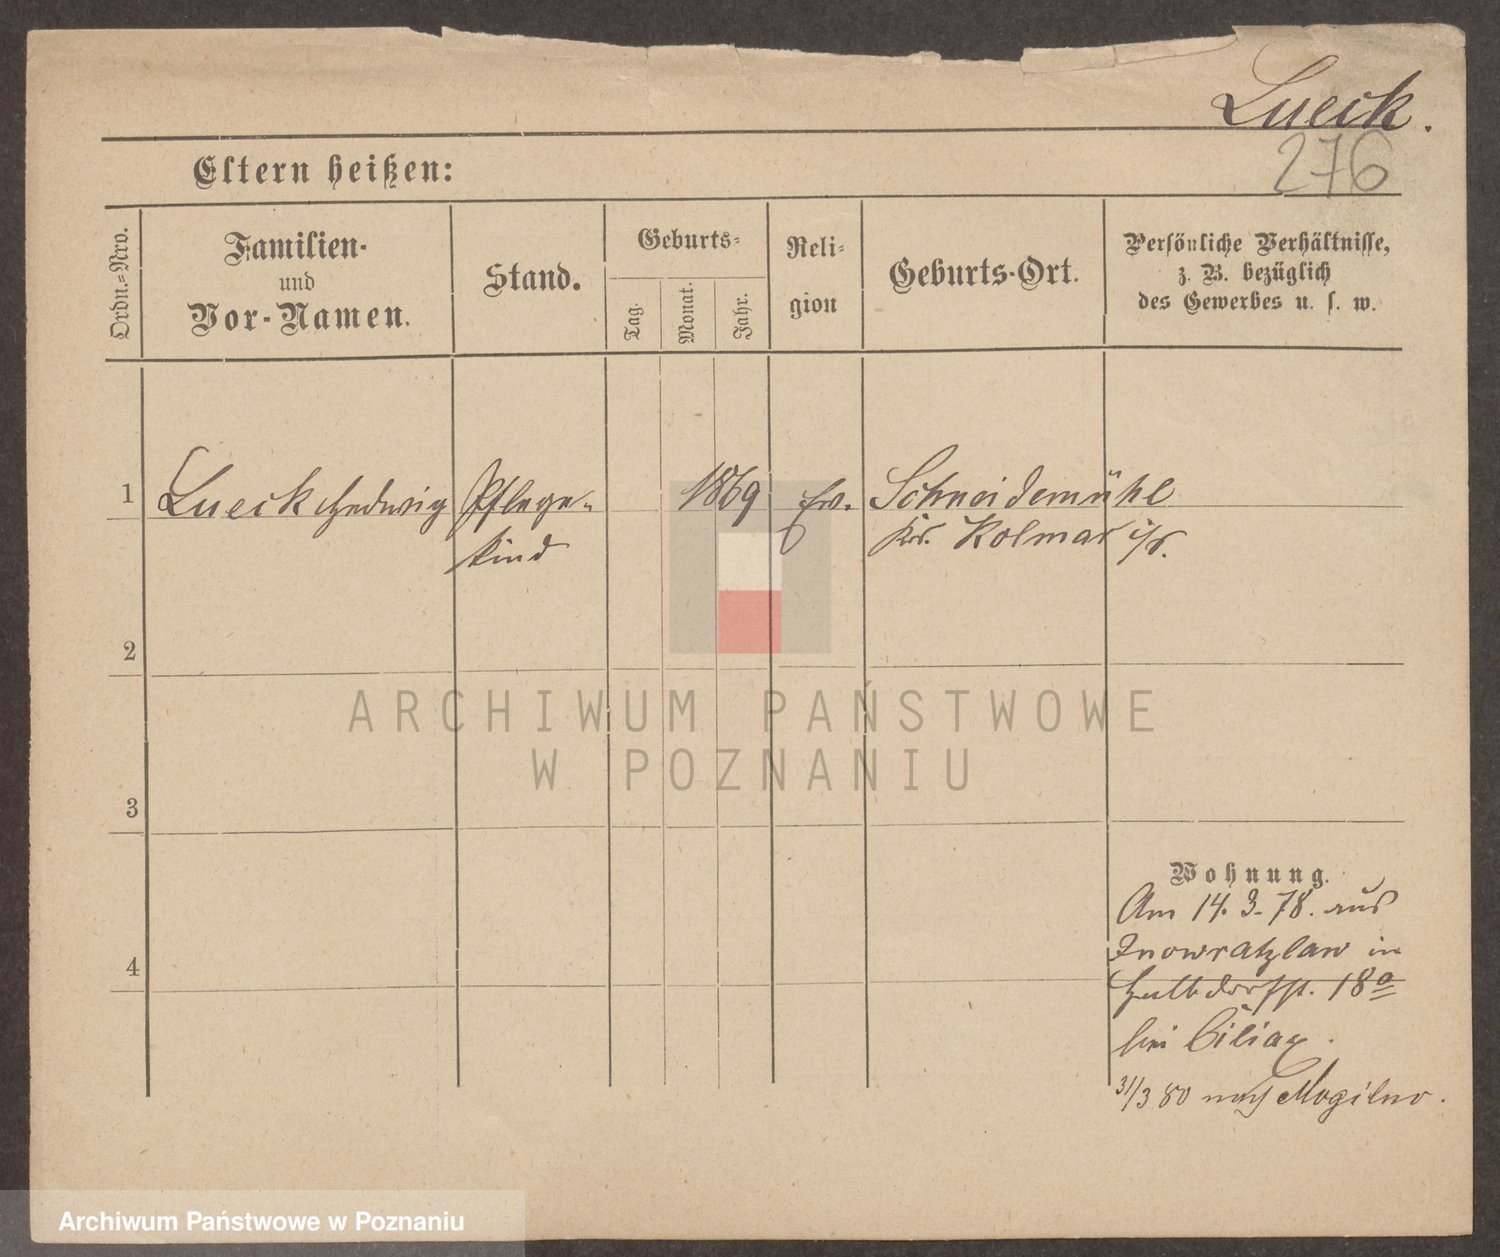 Lueck.
276
Eltern heißen:
Ordn.-Nro.
Familien-
und
Vor-Namen.
Stand.
Geburts-
Tag.
Monat.
Jahr.
Reli-
gion
Geburts-Ort.
Persönliche Verhältnisse,
z. B. bezüglich
des Gewerbes u. s. w.
1
Lueck Hedwig
Pflege-
kind
1869
Ev.
Schneidemühl
Krs. Kolmar i/P.
2
ARCHIWUM PAŃSTWOWE
W POZNANIU
3
Wohnung.
Am 14. 3. 78. aus
Inowratzlaw in
4
Halbdorfst. 18a
bei Ciliax.
31/3 80 nach Mogilno.
Archiwum Państwowe w Poznaniu